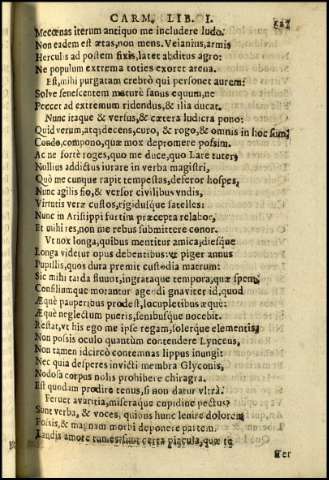 CARM. LIB. I.
Mecœnas iterum antiquo me includere ludo.
Non eadem est ætas, non mens. Veianius, armis
Herculis ad postem fixis, latet abditus agro:
Ne populum extrema toties exoret arena.
Est, mihi purgatam crebrò qui personet aurem:
Solve senescentem maturè sanus equum, ne
Peccet ad extremum ridendus, & ilia ducat.
Nunc itaque & versus, & cætera ludicra pono:
Quid verum, atq; decens, curo, & rogo, & omnis in hoc sum;
Condo, compono, quæ mox depromere possim.
Ac ne fortè roges, quo me duce, quo Lare tuter;
Nullius addictus iurare in verba magistri,
Quò me cunque rapit tempestas, deferor hospes,
Nunc agilis fio, & versor civilibus vndis,
Virtutis veræ custos, rigidusque satelles:
Nunc in Aristippi furtim præcepta relabor,
Et mihi res, non me rebus submittere conor.
Vt nox longa, quibus mentitur amica, diesque
Longa videtur opus debentibus: vt piger annus
Pupillis, quos dura premit custodia matrum:
Sic mihi tarda fluunt, ingrataque tempora, quæ spem,
Consiliumque morantur agendi gnaviter id, quod
Æquè pauperibus prodest, locupletibus æquè:
Æquè neglectum pueris, senibusque nocebit.
Restat, vt his ego me ipse regam, solerque elementis,
Non possis oculo quantùm contendere Lynceus,
Non tamen idcircò contemnas lippus inungi:
Nec quia desperes invicti membra Glyconis,
Nodosa corpus nolis prohibere chiragra.
Est quodam prodire tenus, si non datur vltrà.
Fervet avaritia, miseraque cupidine pectus?
Sunt verba, & voces, quibus hunc lenire dolorem
Possis, & magnam morbi deponere partem.
Laudis amore tumes? sunt certa piacula, quæ te
Ter